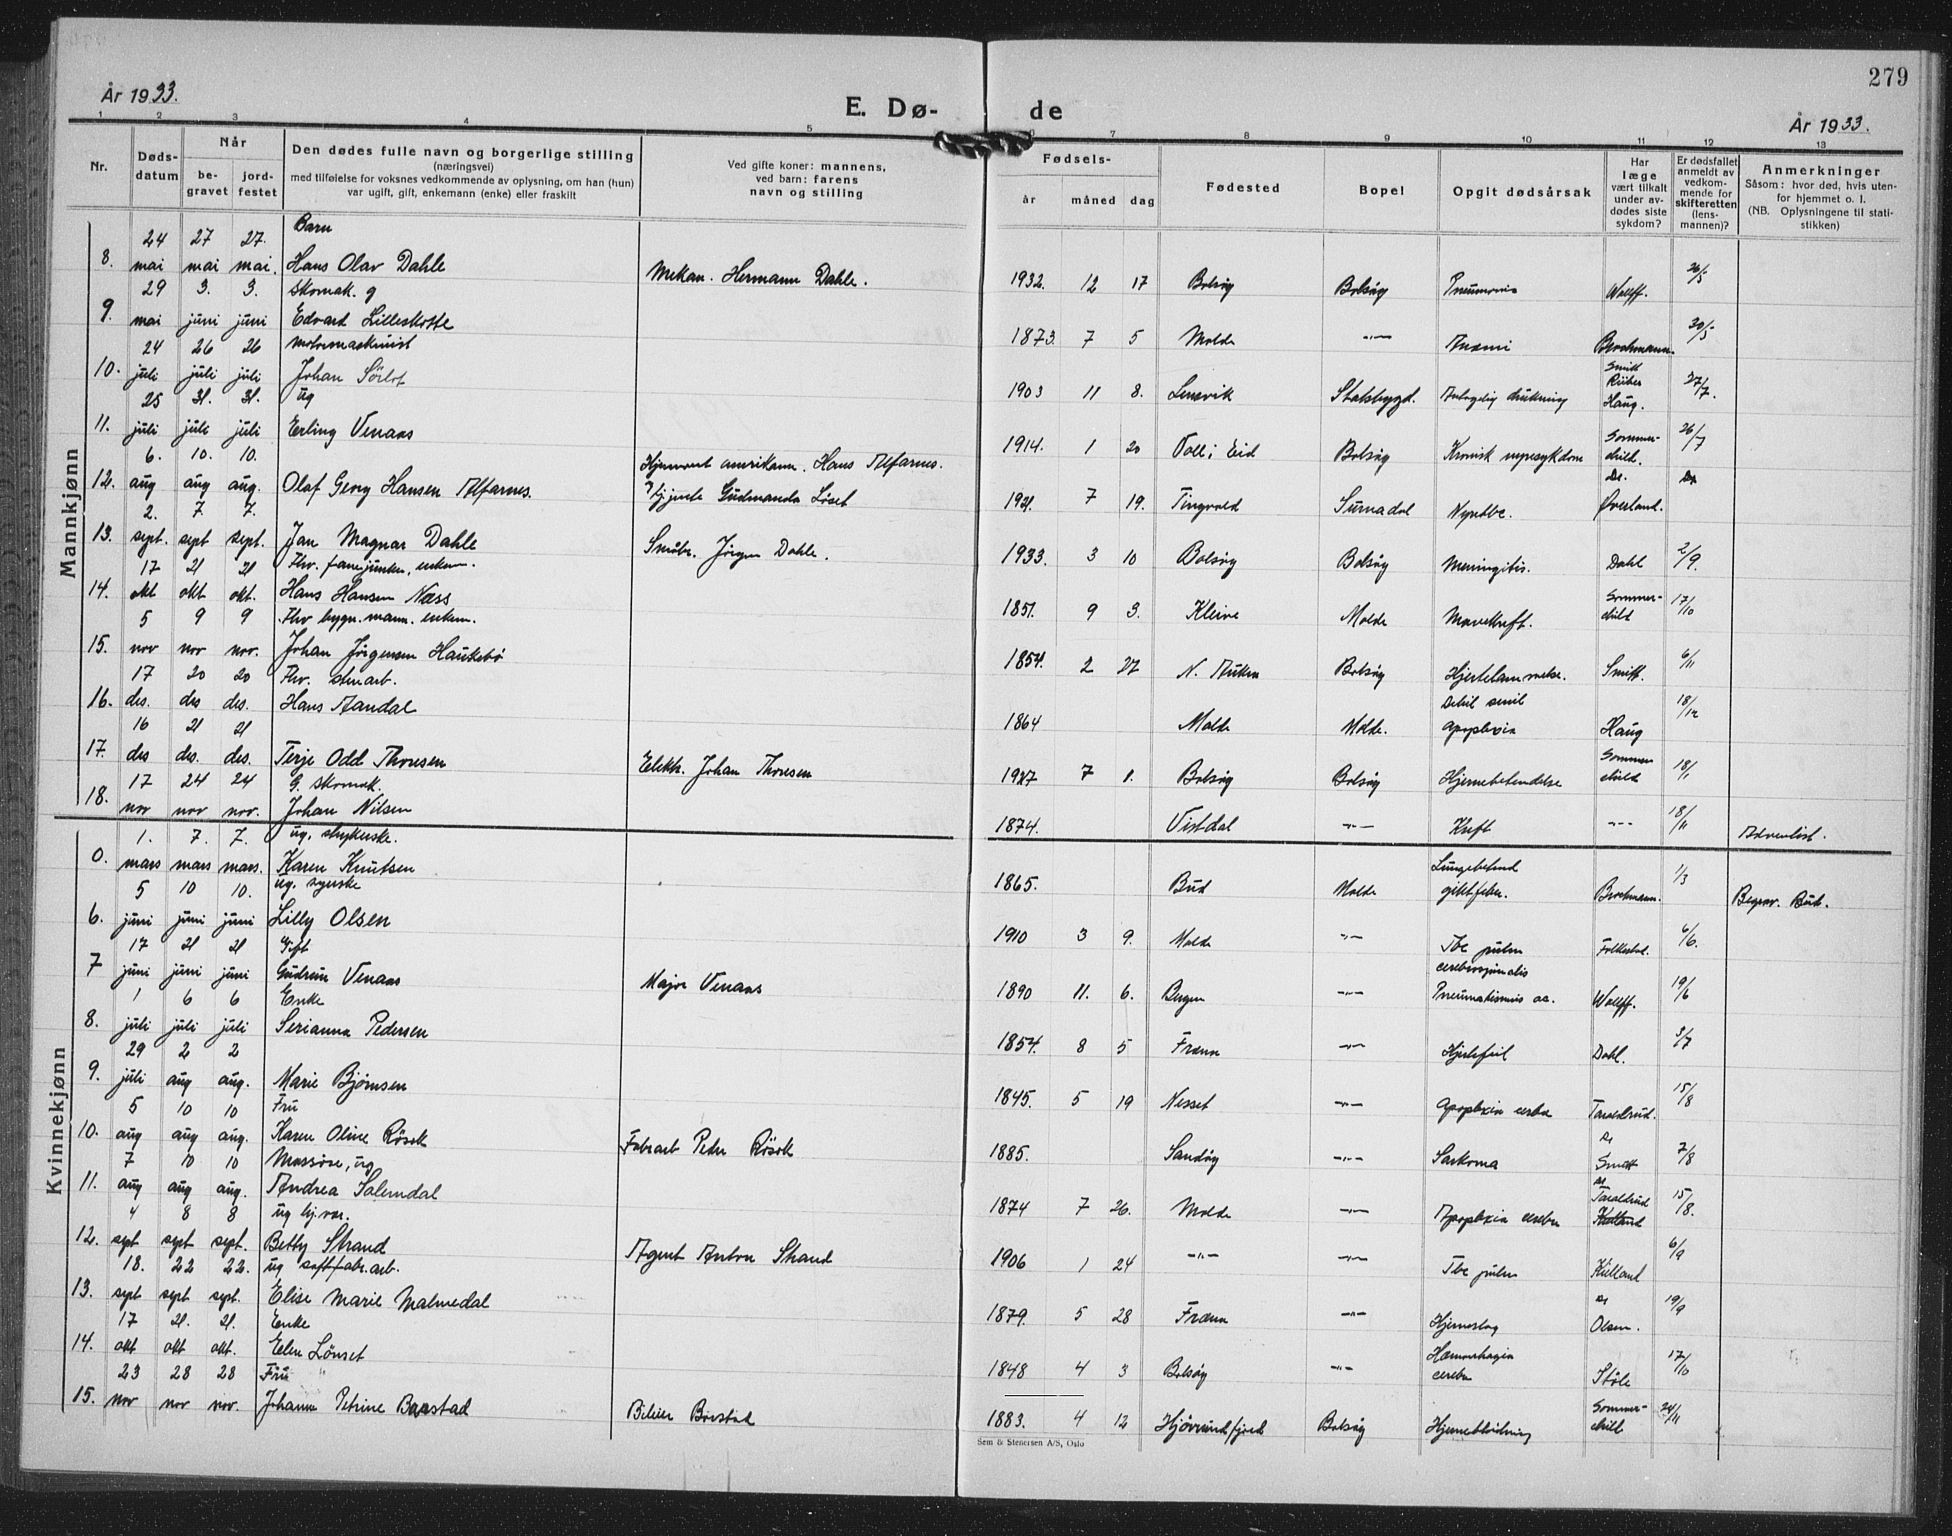 279
År 1933.
E. Dø- de
År 1933.
1 2 3 4 5 6 7 8 9 10 11 12 13
Nr.
Døds-
datum
Når
be-
gravet
jord-
festet
Den dødes fulle navn og borgerlige stilling
(næringsvei)
med tilføielse for voksnes vedkommende av oplysning, om han (hun)
var ugift, gift, enkemann (enke) eller fraskilt
Ved gifte koner: mannens,
ved barn: farens
navn og stilling
Fødsels-
år måned dag
Fødested
Bopel
Opgit dødsårsak
Har
læge
vært tilkalt
under av-
dødes siste
sykdom?
Er dødsfallet
anmeldt av
vedkom-
mende for
skifteretten
(lens-
mannen)?
Anmerkninger
Såsom: hvor død, hvis uten-
for hjemmet o. l.
(NB. Oplysningene til stati-
stikken)
Mannkjønn
Barn
8. 24 mai 27 mai 27. mai. Hans Olav Dahle Mekan. Hermann Dahle. 1932. 12 17 Bolsøy Bolsøy Pneumonia Wolff. 26/5
Skomak. g
9. 29 mai 3. juni 3. juni Edvard Lilleskotte 1873. 7 5 Molde -"- Anæmi Brochmann. 30/5
motormaskinist
10. 24 juli 26 juli 26 juli Johan Sörlot 1903 11 8. Lensvik Stadsbygd. drukning Smitt Riiber Haug. 27/7.
ug
11. 25 juli 31. juli 31. juli Erling Venaas 1914. 1 20 Voll i Eid Bolsøy Kronisk nyresykdom Sommer-
schild. 26/7
12. 6. aug 10. aug 10. aug. Olaf Georg Hansen Alfarnes. Hjemvent amerikaner. Hans Alfarnes.
Gudmunda Løset 1921. 7 19. Tingvold Surnadal Nyretbc. Dr. Øverland.
13. 2. sept. 7. sept 7. sept. Jan Magnar Dahle Småbr. Jörgen Dahle. 1933. 3 10 Bolsøy Bolsøy Meningitis. Dahl 2/9.
Fhv. fanejunker, enkem.
14. 17 okt 21 okt 21 okt. Hans Hansen Næss 1851. 9 3. Kleive Molde Mavekreft. Sommer-
schild 17/10
Fhv bygn. mann. enkem.
15. 5 nov 9 nov 9 nov. Johan Jörgensen Haukebö 1854. 2 27 N. Aukra Bolsøy Hjertelammelse. Smitt. 6/11
Fhv. stenarb.
16. 17 des. 20 des 20 des. Hans Aandal 1864 Molde Molde. Debil senil
apoplexia Haug 18/12
17. 16 des 21 des. 21 des. Terje Odd Thoresen Elektr. Johan Thoresen 1927 7 1. Bolsøy Bolsøy Hjernebetendelse Sommer
schild 18/1
G. Skomak.
18. 17 nov 24 nov 24 nov. Johan Nilsen 1874. Vistdal -"- Kreft -"- 18/11 Adventist.
Kvinnekjønn
ug. strykerske.
0. 1. mars 7. mars 7. mars. Karen Knutsen 1865. Bud Molde Lungebetend
giktfeber. Brochmann. 1/3 Begrav. Bud.
ug. syerske
6. 5 juni 10 juni 10. juni Lilly Olsen 1910 3 9. Molde -"- Tbc pulm
cerebrospinalis Folkestad. 6/6.
Gift
7 17 juni 21 juni 21 juni Gudrun Venaas Major Venaas 1890 11. 6. Bergen -"- Pneumatismus Wolff. 19/6
Enke
8. 1 juli 6 juli 6 juli Serianna Pedersen 1854. 8 5 Fræna -"- Hjertefeil Dahl. 3/7
9. 29 juli 2 aug 2 aug. Marie Bjørnsen 1845. 5 19 Nesset -"- Apoplexia cerebri Taraldrud. 15/8
Fru
10. 5 aug 10 aug 10 aug. Karen Oline Røsok Fabrarb Peder Røsok 1885. Sandøy -"- Sarkoma Dr Smitt 7/8
Massøse, ug
11. 7 aug 10 aug 10 aug. Andrea Solemdal 1874 7 26. Molde -"- Apoplexia cerebri Dr Taraldrud Kielland 15/8.
ug hj.vær.
12. 4 sept 8 sept 8 sept. Betty Strand Agent Anton Strand 1906 1 24 -"- -"- Tbc pulm Kielland 6/9
ug saftfabr.arb.
13. 18. sept 22 sept 22. sept. Elise Marie Malmedal 1879. 5 28 Fræna -"- Hjerneslag Dr Olsen. 19/9
Enke
14. 17 okt 21. okt 21. okt. Elen Lönset 1848 4 3 Bolsøy -"- Hæmorrhagia
cerebri Støle 17/10
Fru
15. 23 nov 28 nov 28 nov. Johanne Petrine Barstad Bileier Barstad 1883. 4 12 Hjørundfjord Bolsøy Hjerneblødning Sommer-
schild 24/11
Sem & Stenersen A/S, Oslo